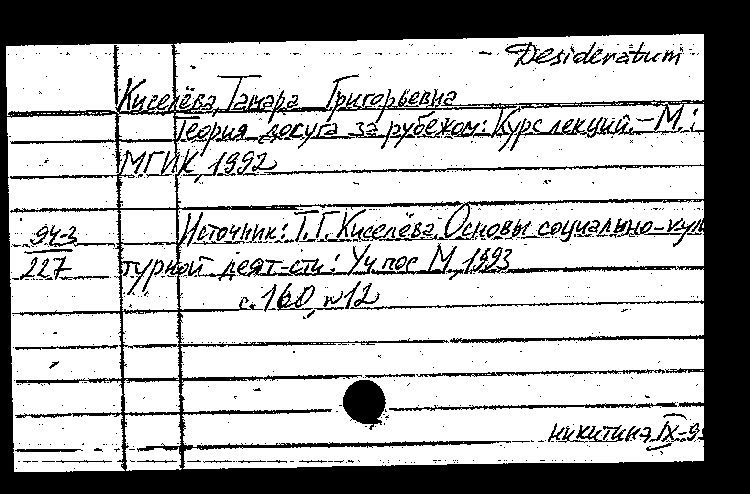 - Desideratum
Киселёва, Тамара Григорьевна
Теория досуга за рубежом: Курс лекций. - М.:
МГИК, 1992
94-3
227
Источник: Т.Г. Киселёва. Основы социально-куль
турной деят-сти: Уч. пос М., 1993
с. 160, №12
Никитина IX-95